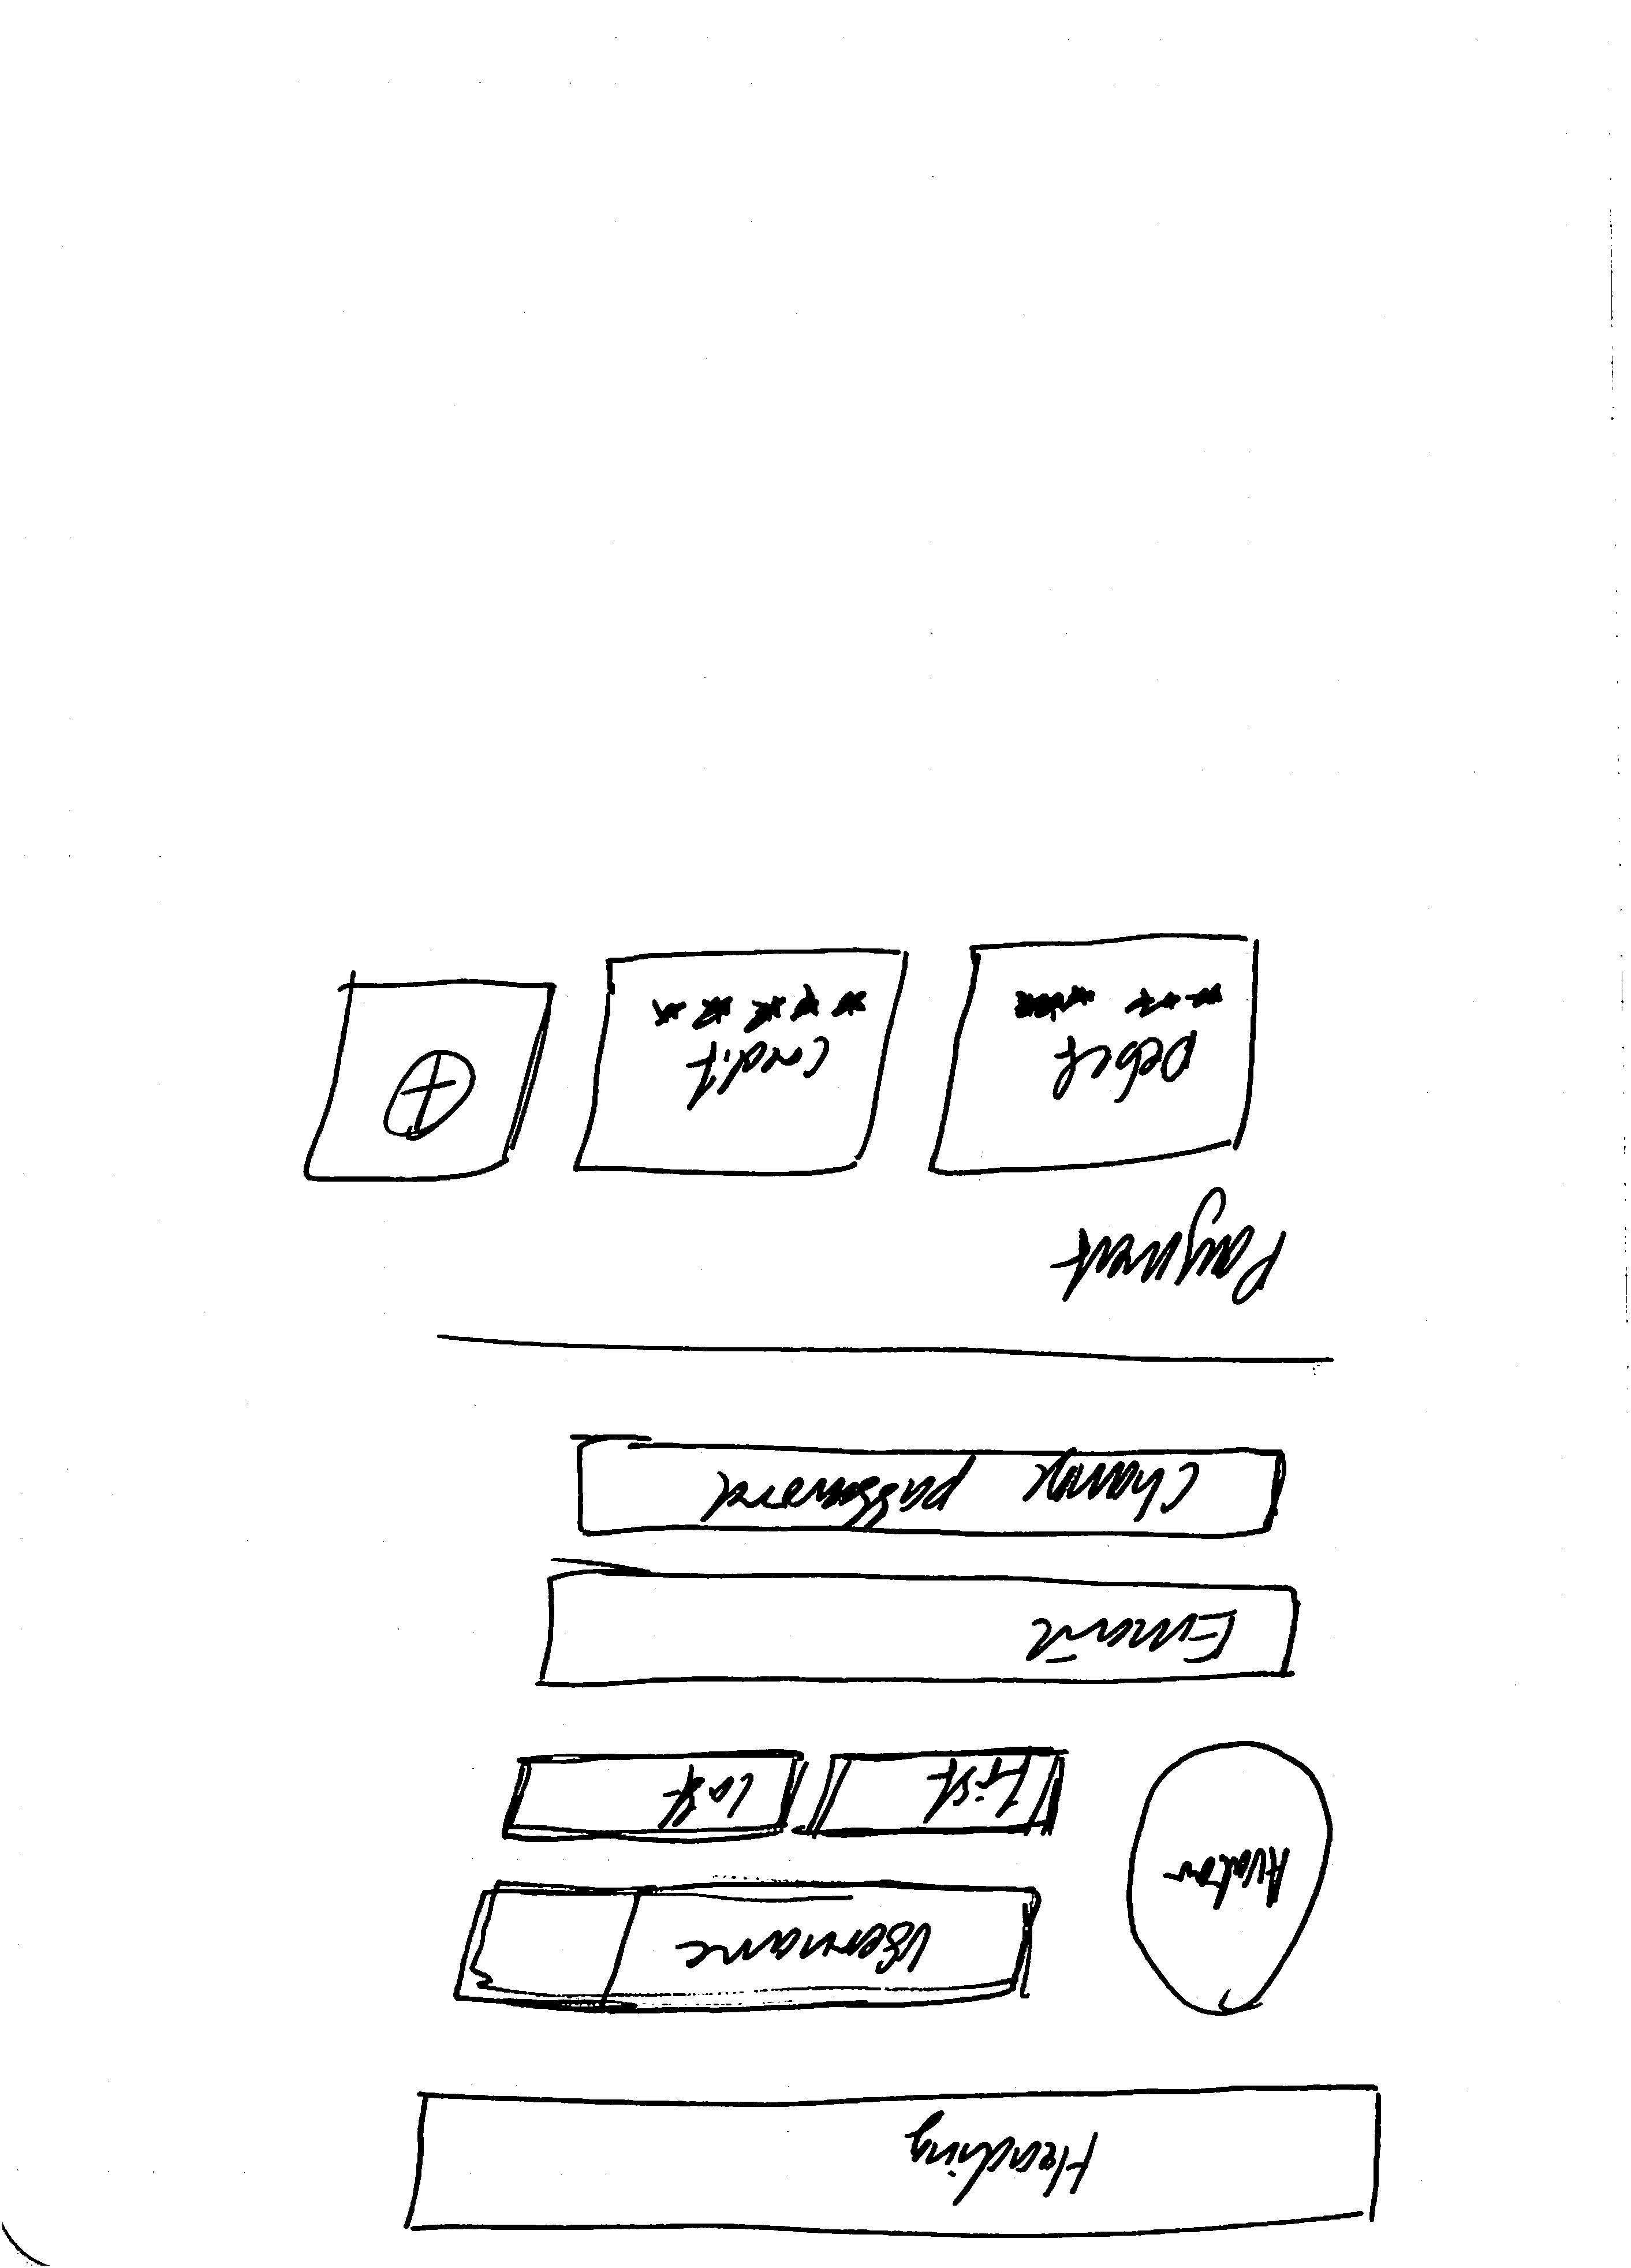 Heading
Avatar
Username
First
Last
Email
Change password
Payment
Debit
**** ****
Credit
*****